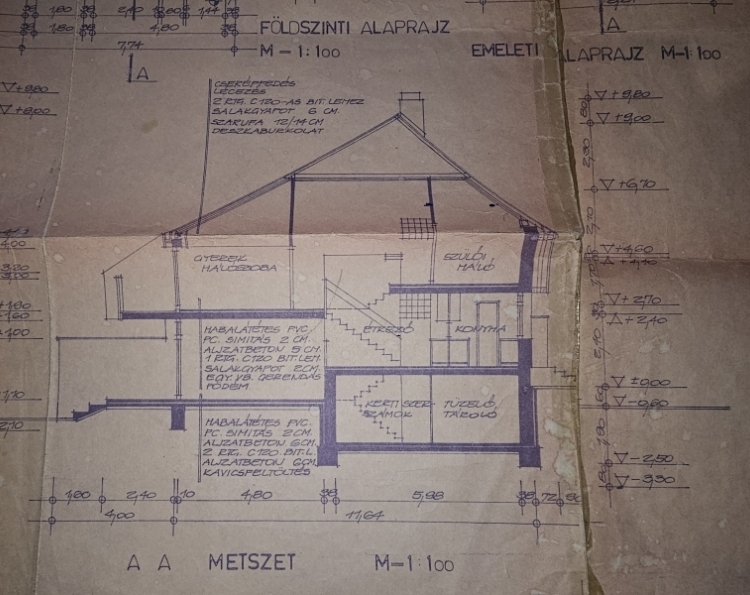 1,80 2,40 60 1,44
1,80 4,80
7,74
FÖLDSZINTI ALAPRAJZ
M-1:100
EMELETI ALAPRAJZ M-1:100
A
A
CSERÉPFEDÉS
LÉCEZÉS
2 RTG. C120-AS BIT. LEMEZ
SALAKGYAPOT 6 CM.
SZARUFA 12/14 CM
DESZKABURKOLAT
+9,80
+9,00
+9,80
+9,00
+6,70
+4,60
+4,40
+2,70
+2,40
±0,00
-0,60
-2,50
-3,30
GYEREK
HÁLÓSZOBA
SZÜLŐI
HÁLÓ
HABALÁTÉTES PVC.
PC. SIMITÁS 2 CM.
ALJZATBETON 5 CM
1 RTG. C120 BIT. LEM.
SALAKGYAPOT 2 CM.
EGY. VB. GERENDÁS
FÖDÉM
ÉTKEZŐ
KONYHA
KERTI SZER-
SZÁMOK
TÜZELŐ,
TÁROLÓ
HABALÁTÉTES PVC.
PC. SIMITÁS 2 CM.
ALJZATBETON 6 CM.
2 RTG. C120 BIT. L.
ALJZATBETON 6 CM.
KAVICSFELTÖLTÉS
1,60 2,40 10 4,80 38 5,98 38 72
4,00 11,64
A A METSZET M-1:100